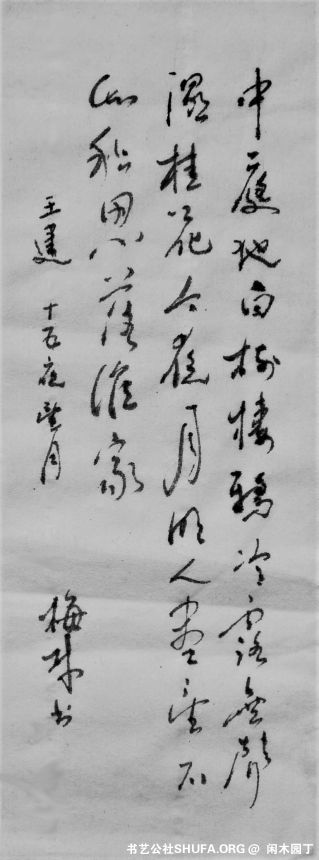 中庭地白樹棲鴉冷露無聲
濕桂花今夜月明人盡望不
知秋思落誰家
王建 十五夜望月
梅 书
书艺公社SHUFA.ORG @ 闲木园丁